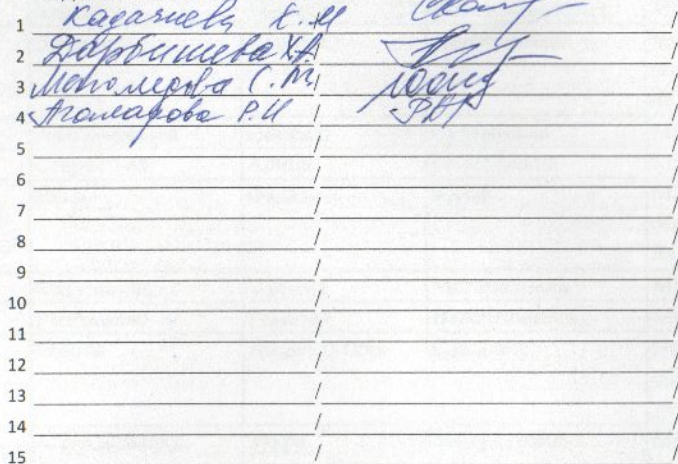 1 Кадачиева Х.М / /
2 Дарбишева Х.А. / /
3 Магомедова С.М. / /
4 Агаларова Р.И / /
5 / /
6 / /
7 / /
8 / /
9 / /
10 / /
11 / /
12 / /
13 / /
14 / /
15 / /